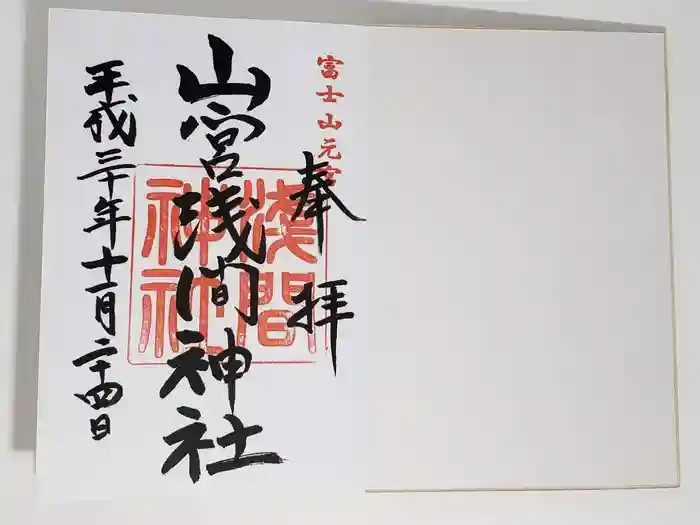 富士山元宮
奉拝
山宮浅間神社
浅間神社
平成三十年十一月二十四日